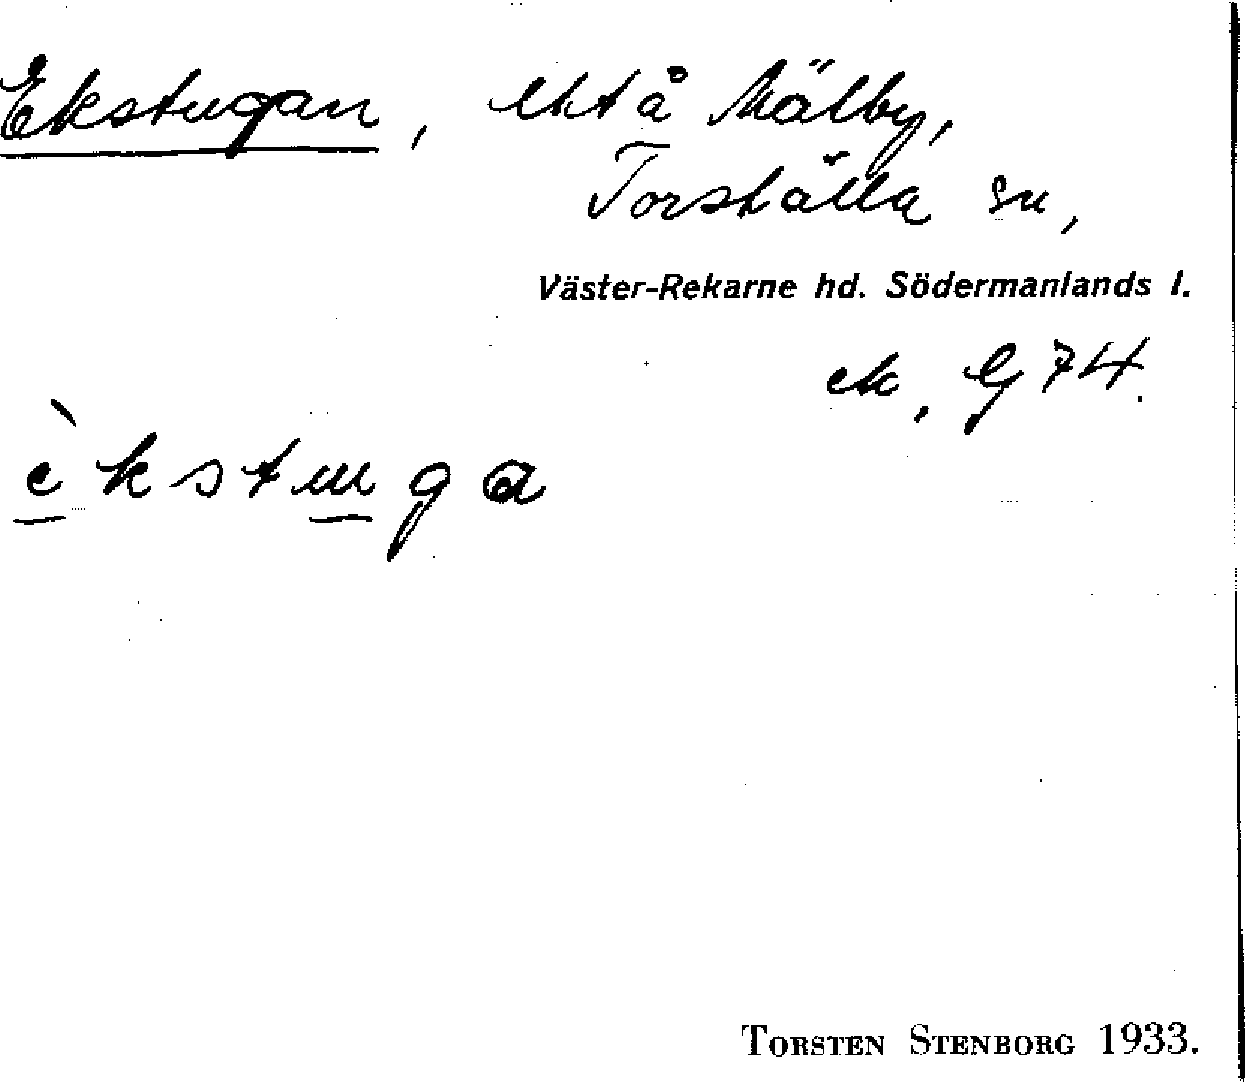 Ekstugan, lht å Mälby,
Torshälla sn,
Väster-Rekarne hd. Södermanlands l.
ek, G 74.
èkstuga
TORSTEN STENBORG 1933.